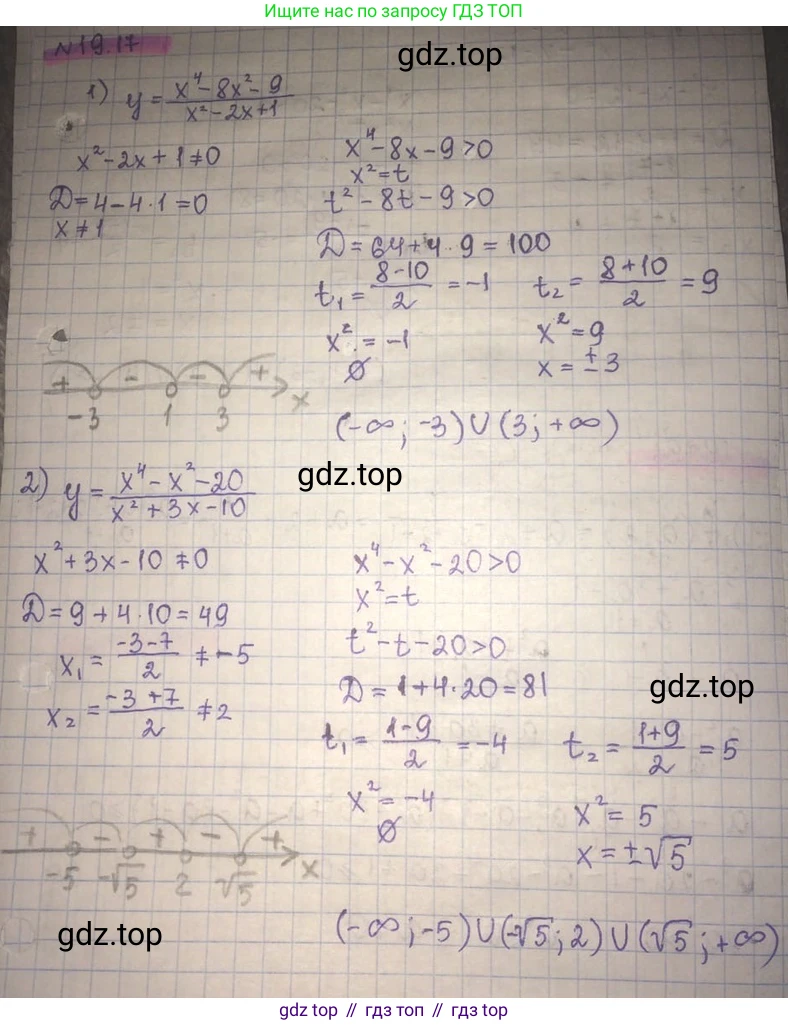 Ищите нас по запросу ГДЗ ТОП
№19.17
gdz.top
1) y = (x⁴ - 8x² - 9)/(x² - 2x + 1)
x² - 2x + 1 ≠ 0
D = 4 - 4 · 1 = 0
x ≠ 1
x⁴ - 8x - 9 > 0
x² = t
t² - 8t - 9 > 0
D = 64 + 4 · 9 = 100
t₁ = (8 - 10)/2 = -1 t₂ = (8 + 10)/2 = 9
x² = -1 x² = 9
∅ x = ±3
+ - - +
-3 1 3 x
(-∞; -3) ∪ (3; +∞)
2) y = (x⁴ - x² - 20)/(x² + 3x - 10)
gdz.top
x² + 3x - 10 ≠ 0
D = 9 + 4 · 10 = 49
x₁ = (-3 - 7)/2 ≠ -5
x₂ = (-3 + 7)/2 ≠ 2
x⁴ - x² - 20 > 0
x² = t
t² - t - 20 > 0
gdz.top
D = 1 + 4 · 20 = 81
t₁ = (1 - 9)/2 = -4 t₂ = (1 + 9)/2 = 5
x² = -4 x² = 5
∅ x = ±√5
+ - + - +
-5 -√5 2 √5 x
(-∞; -5) ∪ (-√5; 2) ∪ (√5; +∞)
gdz.top
gdz.top // гдз топ // gdz top